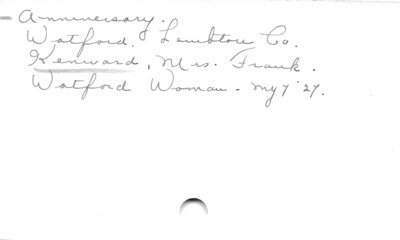 - Anniversary.
Watford. Lambton Co.
Kenward, Mrs. Frank.
Watford Woman - My 7 '27.